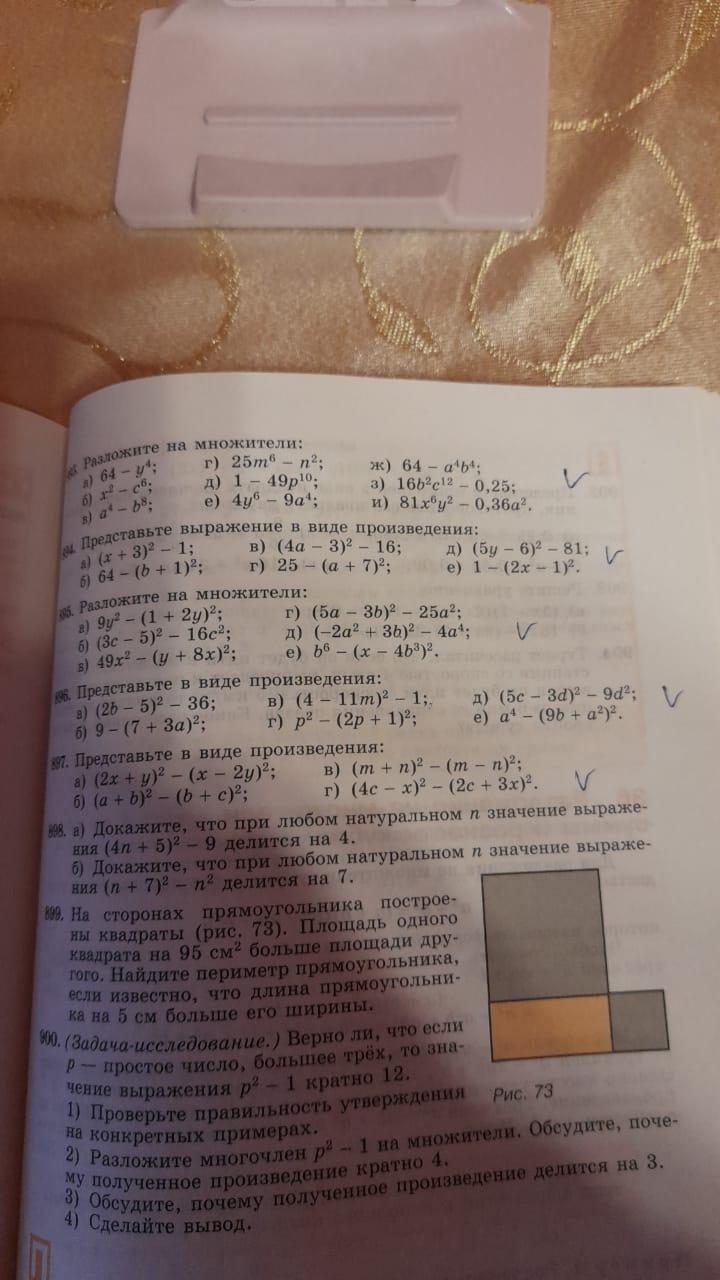 Разложите на множители:
а) 64 − y⁴; г) 25m⁶ − n²; ж) 64 − a⁴b⁴;
б) x² − c⁶; д) 1 − 49p¹⁰; з) 16b²c¹² − 0,25;
в) a⁴ − b⁸; е) 4y⁶ − 9a⁴; и) 81x⁶y² − 0,36a².
894. Представьте выражение в виде произведения:
а) (x + 3)² − 1; в) (4a − 3)² − 16; д) (5y − 6)² − 81;
б) 64 − (b + 1)²; г) 25 − (a + 7)²; е) 1 − (2x − 1)².
895. Разложите на множители:
а) 9y² − (1 + 2y)²; г) (5a − 3b)² − 25a²;
б) (3c − 5)² − 16c²; д) (−2a² + 3b)² − 4a⁴;
в) 49x² − (y + 8x)²; е) b⁶ − (x − 4b³)².
896. Представьте в виде произведения:
а) (2b − 5)² − 36; в) (4 − 11m)² − 1; д) (5c − 3d)² − 9d²;
б) 9 − (7 + 3a)²; г) p² − (2p + 1)²; е) a⁴ − (9b + a²)².
897. Представьте в виде произведения:
а) (2x + y)² − (x − 2y)²; в) (m + n)² − (m − n)²;
б) (a + b)² − (b + c)²; г) (4c − x)² − (2c + 3x)².
898. а) Докажите, что при любом натуральном n значение выраже-
ния (4n + 5)² − 9 делится на 4.
б) Докажите, что при любом натуральном n значение выраже-
ния (n + 7)² − n² делится на 7.
899. На сторонах прямоугольника построе-
ны квадраты (рис. 73). Площадь одного
квадрата на 95 см² больше площади дру-
гого. Найдите периметр прямоугольника,
если известно, что длина прямоугольни-
ка на 5 см больше его ширины.
900. (Задача-исследование.) Верно ли, что если
p — простое число, большее трёх, то зна-
чение выражения p² − 1 кратно 12.
1) Проверьте правильность утверждения
на конкретных примерах.
Рис. 73
2) Разложите многочлен p² − 1 на множители. Обсудите, поче-
му полученное произведение кратно 4.
3) Обсудите, почему полученное произведение делится на 3.
4) Сделайте вывод.